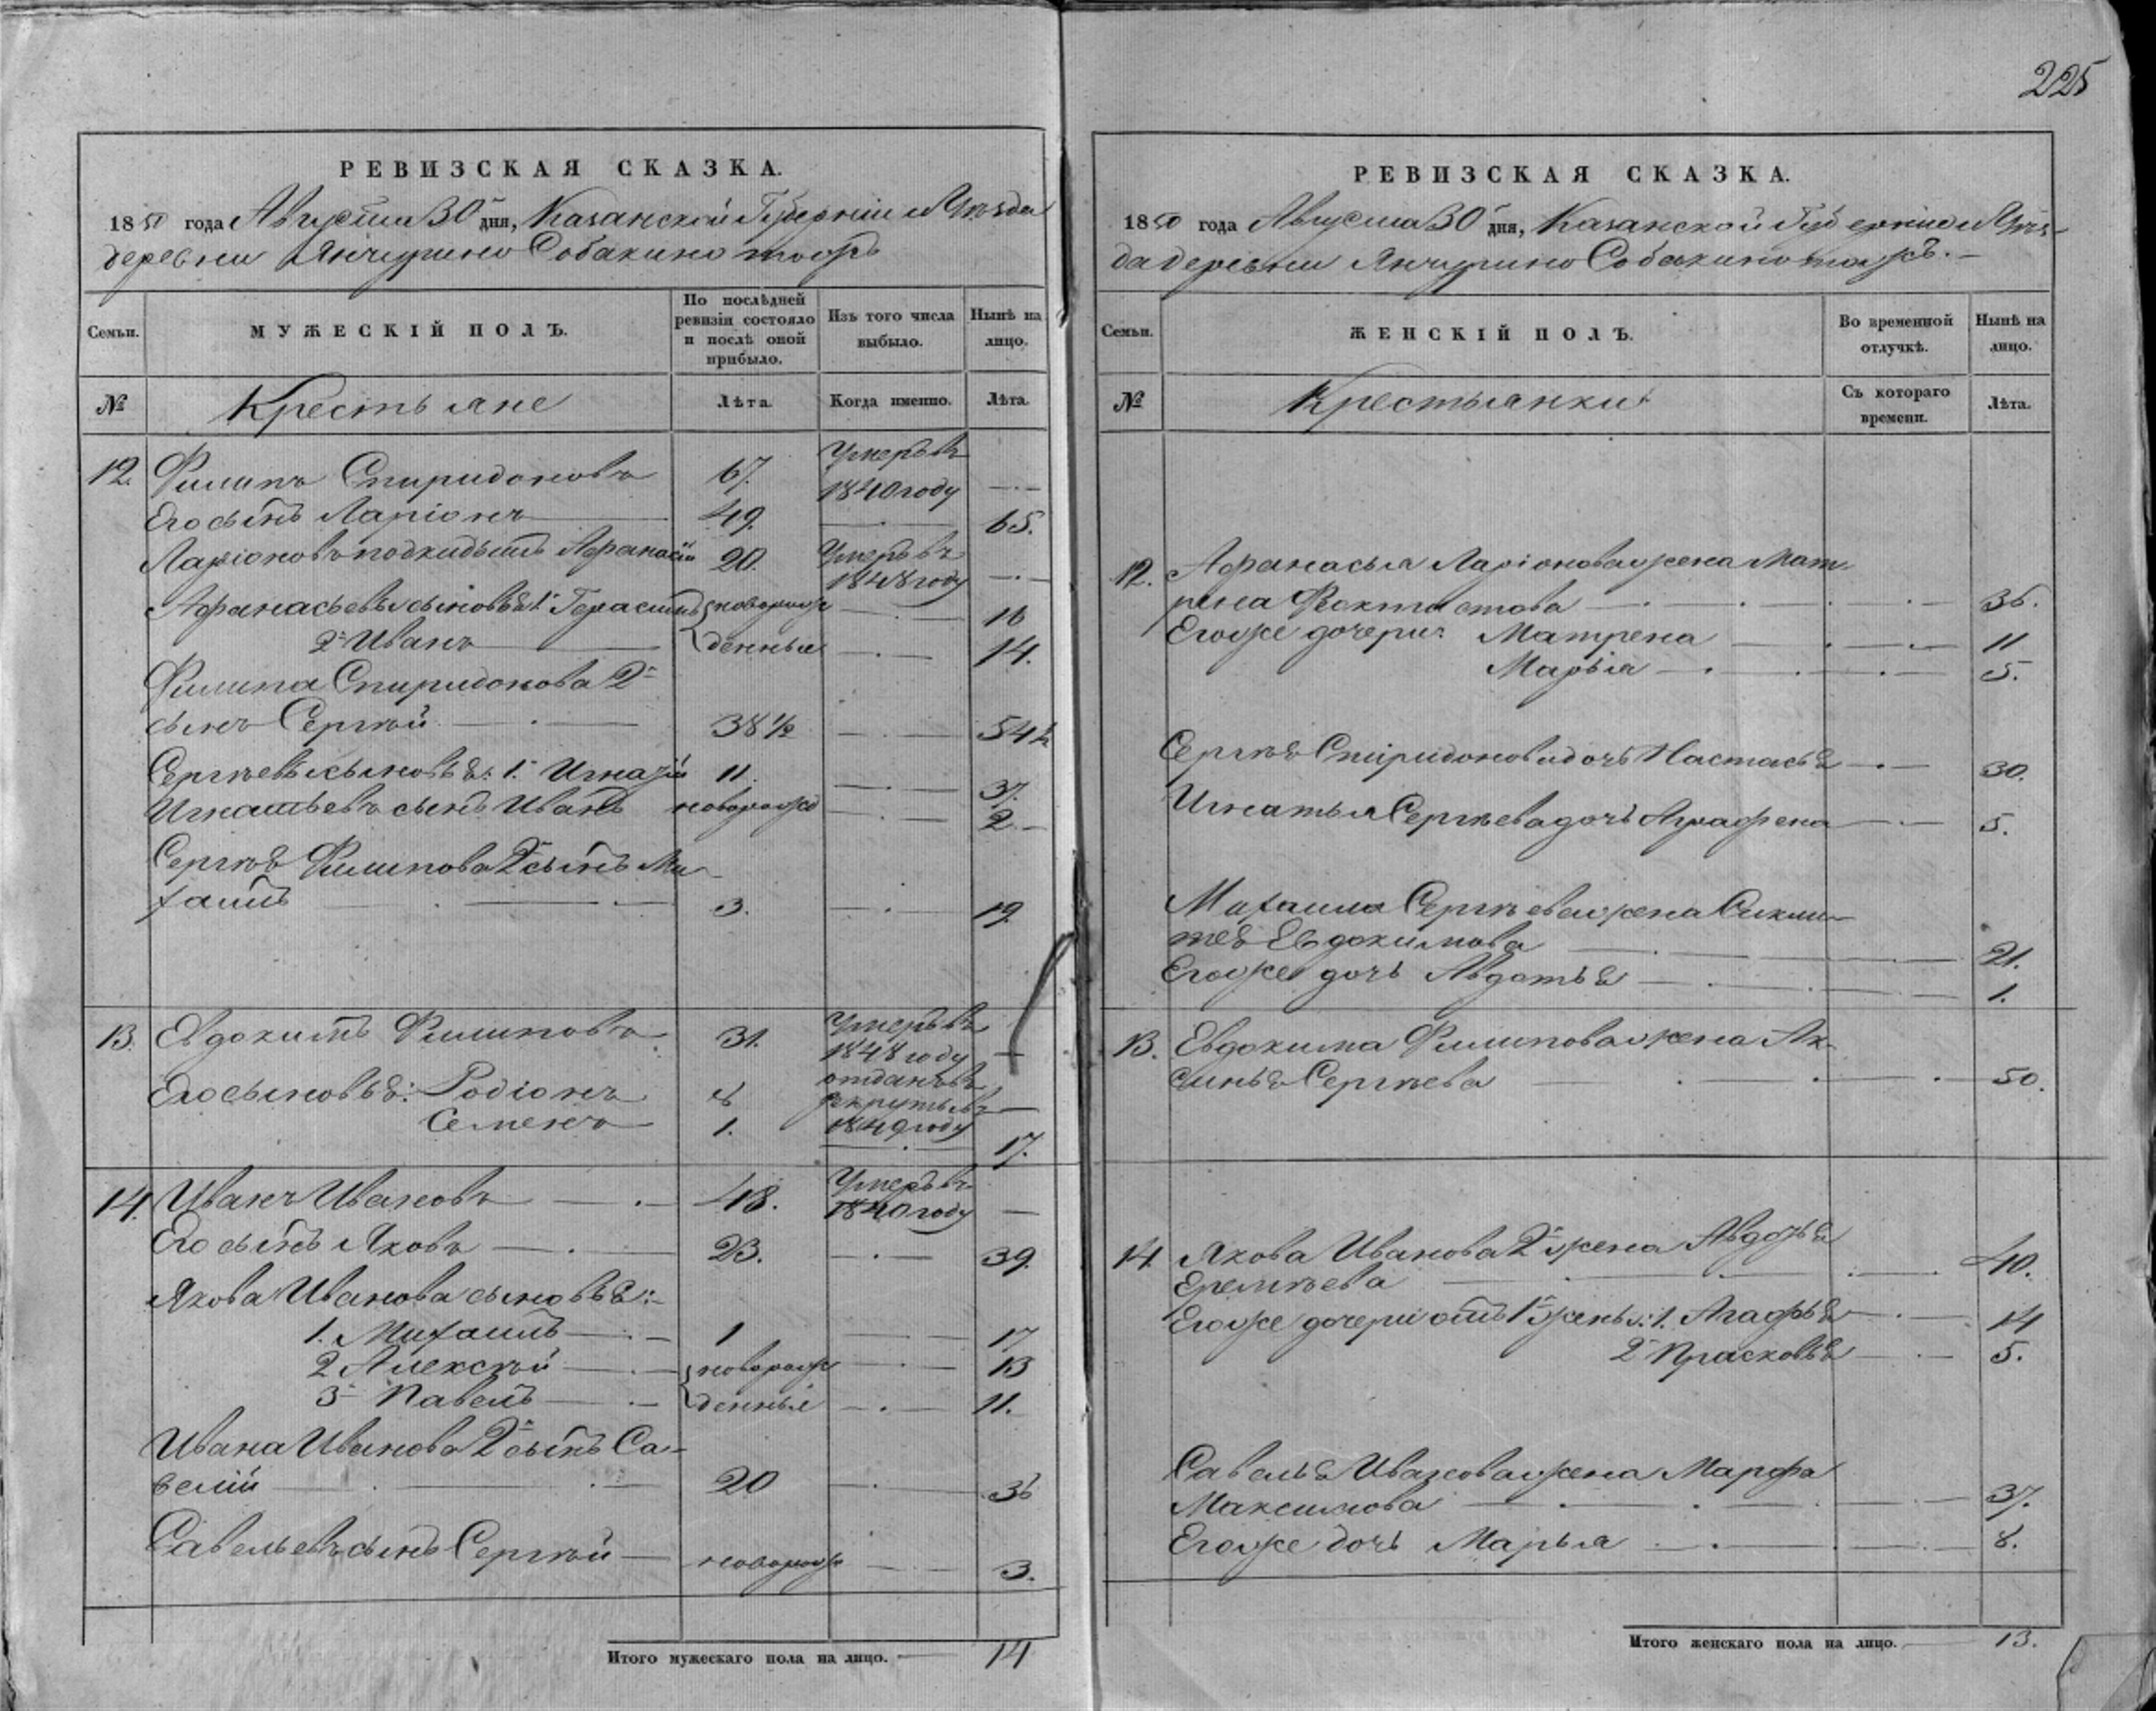 225
РЕВИЗСКАЯ СКАЗКА.
1850 года Августа 30 дня, Казанской Губерніи и Уѣзда
деревни Янчурино Собакино тожъ
Семьи.
МУЖЕСКІЙ ПОЛЪ.
По послѣдней ревизіи состояло и послѣ оной прибыло.
Изъ того числа выбыло.
Нынѣ на лицо.
№
Крестьяне
Лѣта.
Когда именно.
Лѣта.
12. Филипъ Спиридоновъ 67. Умеръ въ 1840 году —
Его сынъ Ларіонъ 49. — 65.
Ларіоновъ подкидышъ Афанасій 20. Умеръ въ 1848 году —
Афанасьевы сыновья 1й Герасимъ новорож — 16
2й Иванъ денныя — 14.
Филипа Спиридонова 2й
сынъ Сергѣй — 38½ — 54½
Сергѣевы сыновья: 1й Игнатій 11. — 37.
Игнатьевъ сынъ Иванъ новорожд — 2.
Сергѣя Филипова 2й сынъ Ми-
хаилъ — 3. — 19.
13. Евдокимъ Филиповъ 31. Умеръ въ 1848 году —
Его сыновья: Родіонъ 8 отданъ въ рекруты въ 1849 году —
Семенъ 1. — 17.
14. Иванъ Ивановъ — 48. Умеръ въ 1840 году —
Его сынъ Яковъ — 23. — 39.
Якова Иванова сыновья:
1. Михаилъ — 1 — 17
2 Алексѣй — новорож — 13
3й Павелъ — денныя — 11.
Ивана Иванова 2й сынъ Са-
велій — 20 — 36
Савельевъ сынъ Сергѣй — новорож — 3.
Итого мужескаго пола на лицо. — 14
РЕВИЗСКАЯ СКАЗКА.
1850 года Августа 30 дня, Казанской Губерніи и Уѣз-
да деревни Янчурино Собакино тожъ.
Семьи.
ЖЕНСКІЙ ПОЛЪ.
Во временной отлучкѣ.
Нынѣ на лицо.
№
Крестьянки
Съ котораго времени.
Лѣта.
12. Афанасья Ларіонова жена Мат-
рена Феоктистова — 36.
Его же дочери: Матрена — 11
Марья — 5.
Сергѣя Спиридонова дочь Настасья — 30.
Игнатья Сергѣева дочь Аграфена — 5.
Михаила Сергѣева жена
Евдокимова — 21.
Его же дочь Авдотья — 1.
13. Евдокима Филипова жена Ак-
синья Сергѣева — 50.
14. Якова Иванова 2я жена Авдотья
Еремѣева — 40.
Его же дочери отъ 1й жены: 1. Агафья — 14
2 Прасковья — 5.
Савелья Иванова жена Марфа
Максимова — 37.
Его же дочь Марья — 8.
Итого женскаго пола на лицо. — 13.